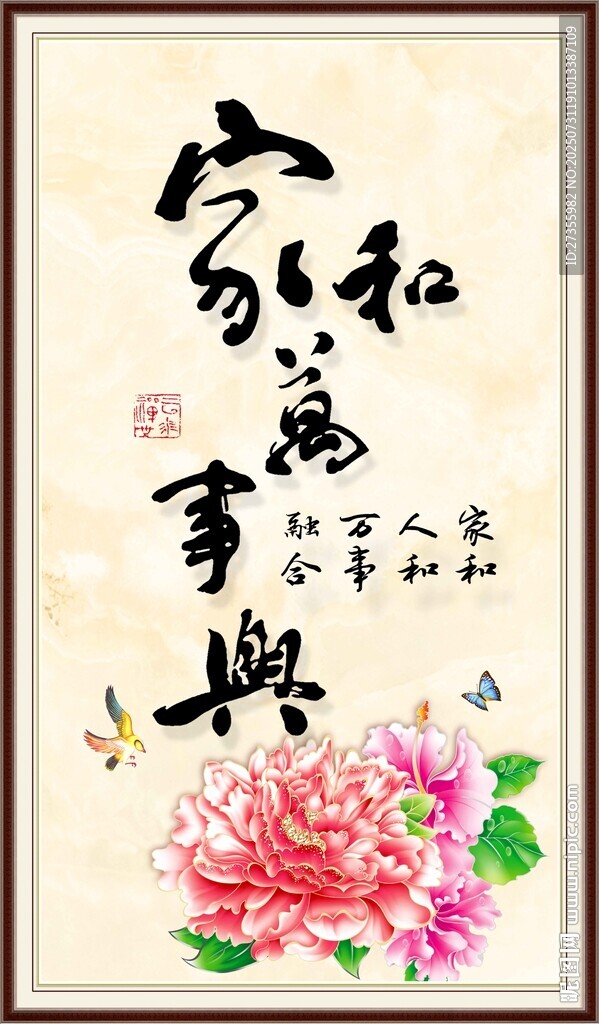 家和
萬
事
興
家和
人和
万事
融合
ID:27355982 NO:20250731191013387109
昵图网 www.nipic.com